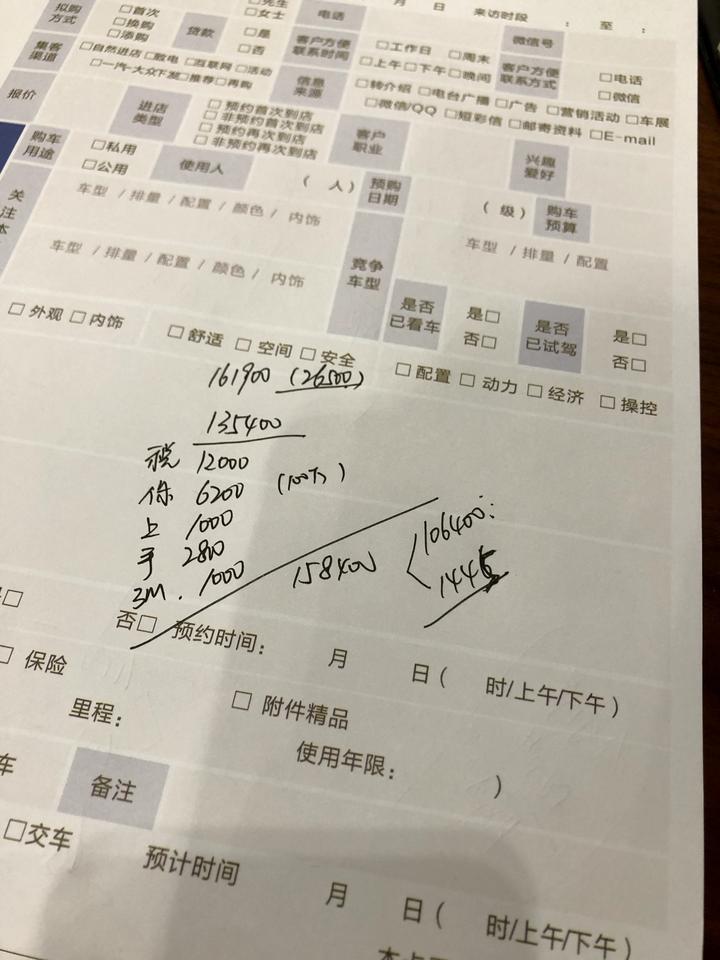 月 日 来访时段 : 至 :
拟购方式 □首次 □换购 □添购 贷款 □是 □否 □先生 □女士 电话
集客渠道 □自然进店 □致电 □互联网 □活动 □一汽-大众下发 □推荐 □再购
客户方便联系时间 □工作日 □周末 □上午 □下午 □晚间 微信号
客户方便联系方式 □电话 □微信
信息来源 □转介绍 □电台广播 □广告 □营销活动 □车展
□微信/QQ □短彩信 □邮寄资料 □E-mail
报价 进店类型 □预约首次到店
□非预约首次到店
□预约再次到店
□非预约再次到店
客户职业 兴趣爱好
购车用途 □私用 □公用 使用人 ( 人) 预购日期 ( 级) 购车预算
关注
车型 / 排量 / 配置 / 颜色 / 内饰
车型 / 排量 / 配置 / 颜色 / 内饰
竞争车型 车型 / 排量 / 配置
是否已看车 是□ 否□ 是否已试驾 是□ 否□
□外观 □内饰 □舒适 □空间 □安全 □配置 □动力 □经济 □操控
161900 (26500)
135400
税 12000
保 6200 (100万)
上 1000
手 2800
3M. 1000
158400
106400:
否□ 预约时间: 月 日( 时/上午/下午)
□ 保险
里程: □ 附件精品
使用年限: )
车 备注
□交车 预计时间 月 日( 时/上午/下午)